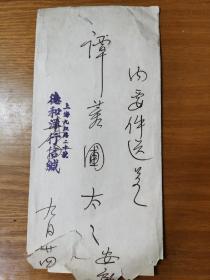 內要件送呈
譚圃太太 安
上海九江路二十號
德和洋行信緘
九月廿四